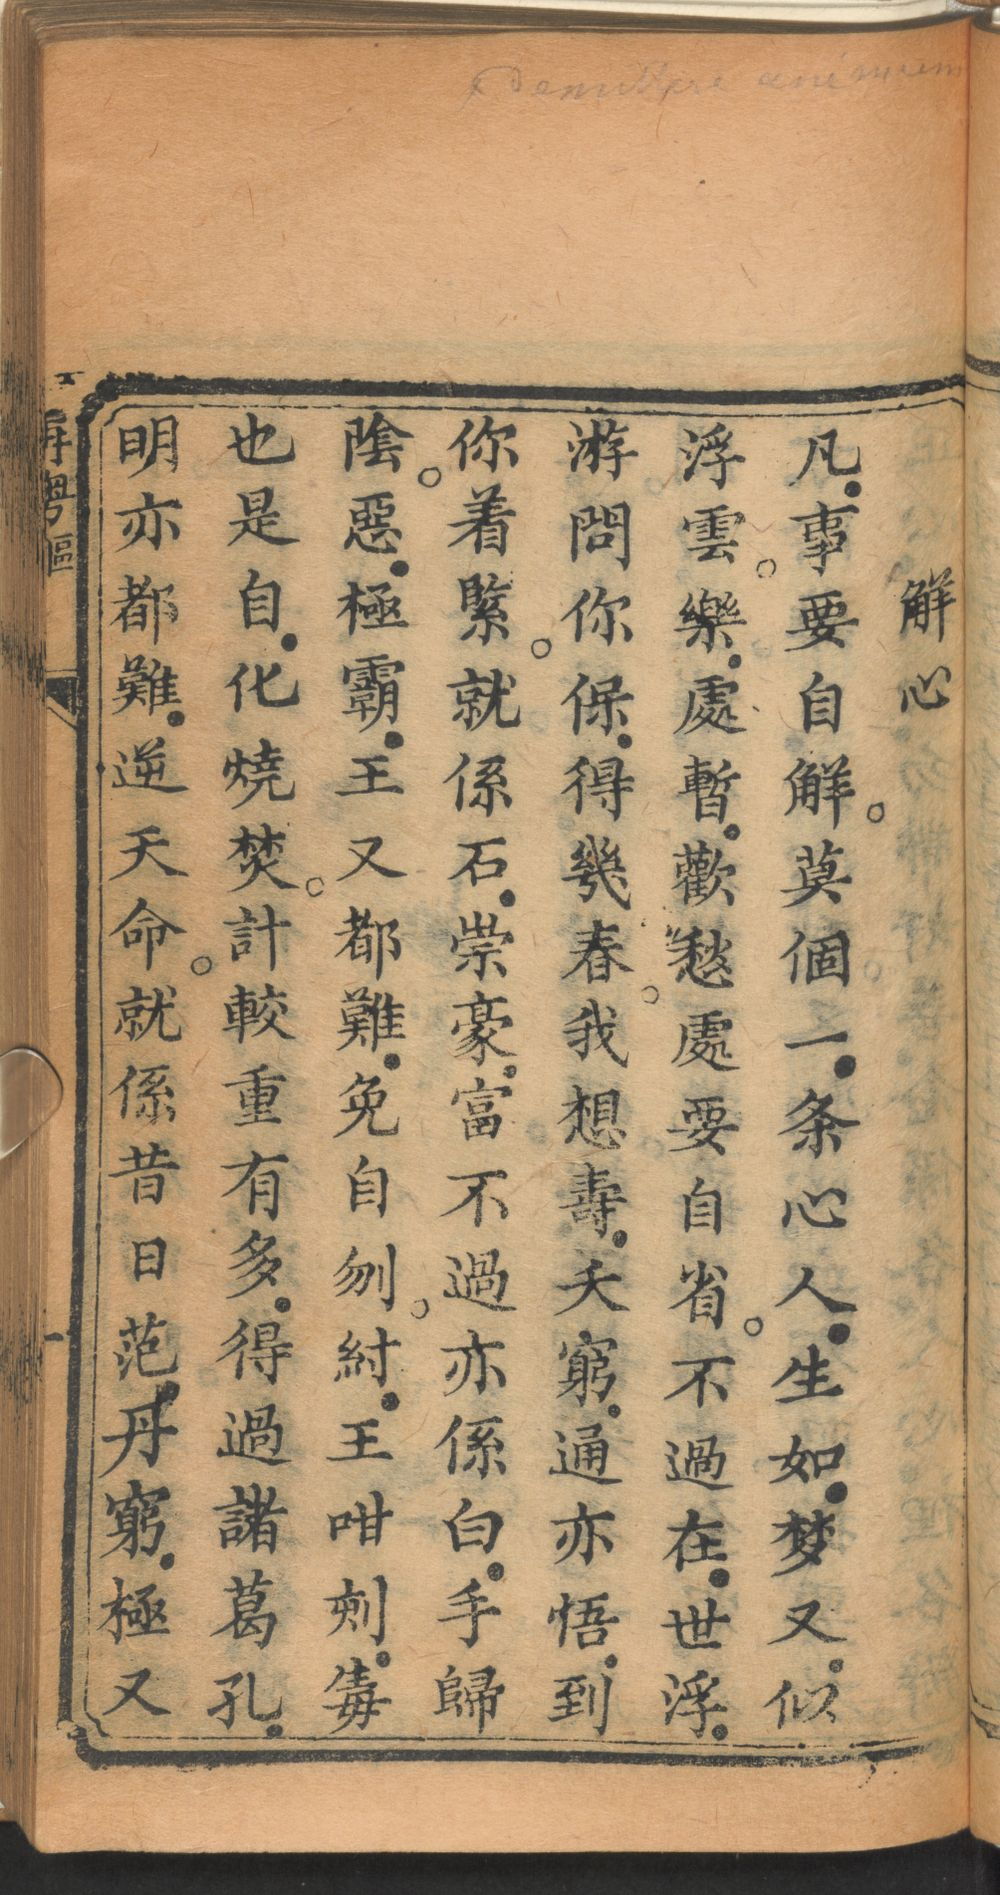 解心
凡事要自解莫個一条心人生如梦又似
浮雲樂處暫歡愁處要自省不過在世浮
游問你保得幾春我想壽夭窮通亦悟到
你着緊就係石崇豪富不過亦係白手歸
陰惡極霸王又都難免自刎紂王咁刻毒
也是自化燒焚計較重有多得過諸葛孔
明亦都難逆天命就係昔日范丹窮極又
再粤謳
一